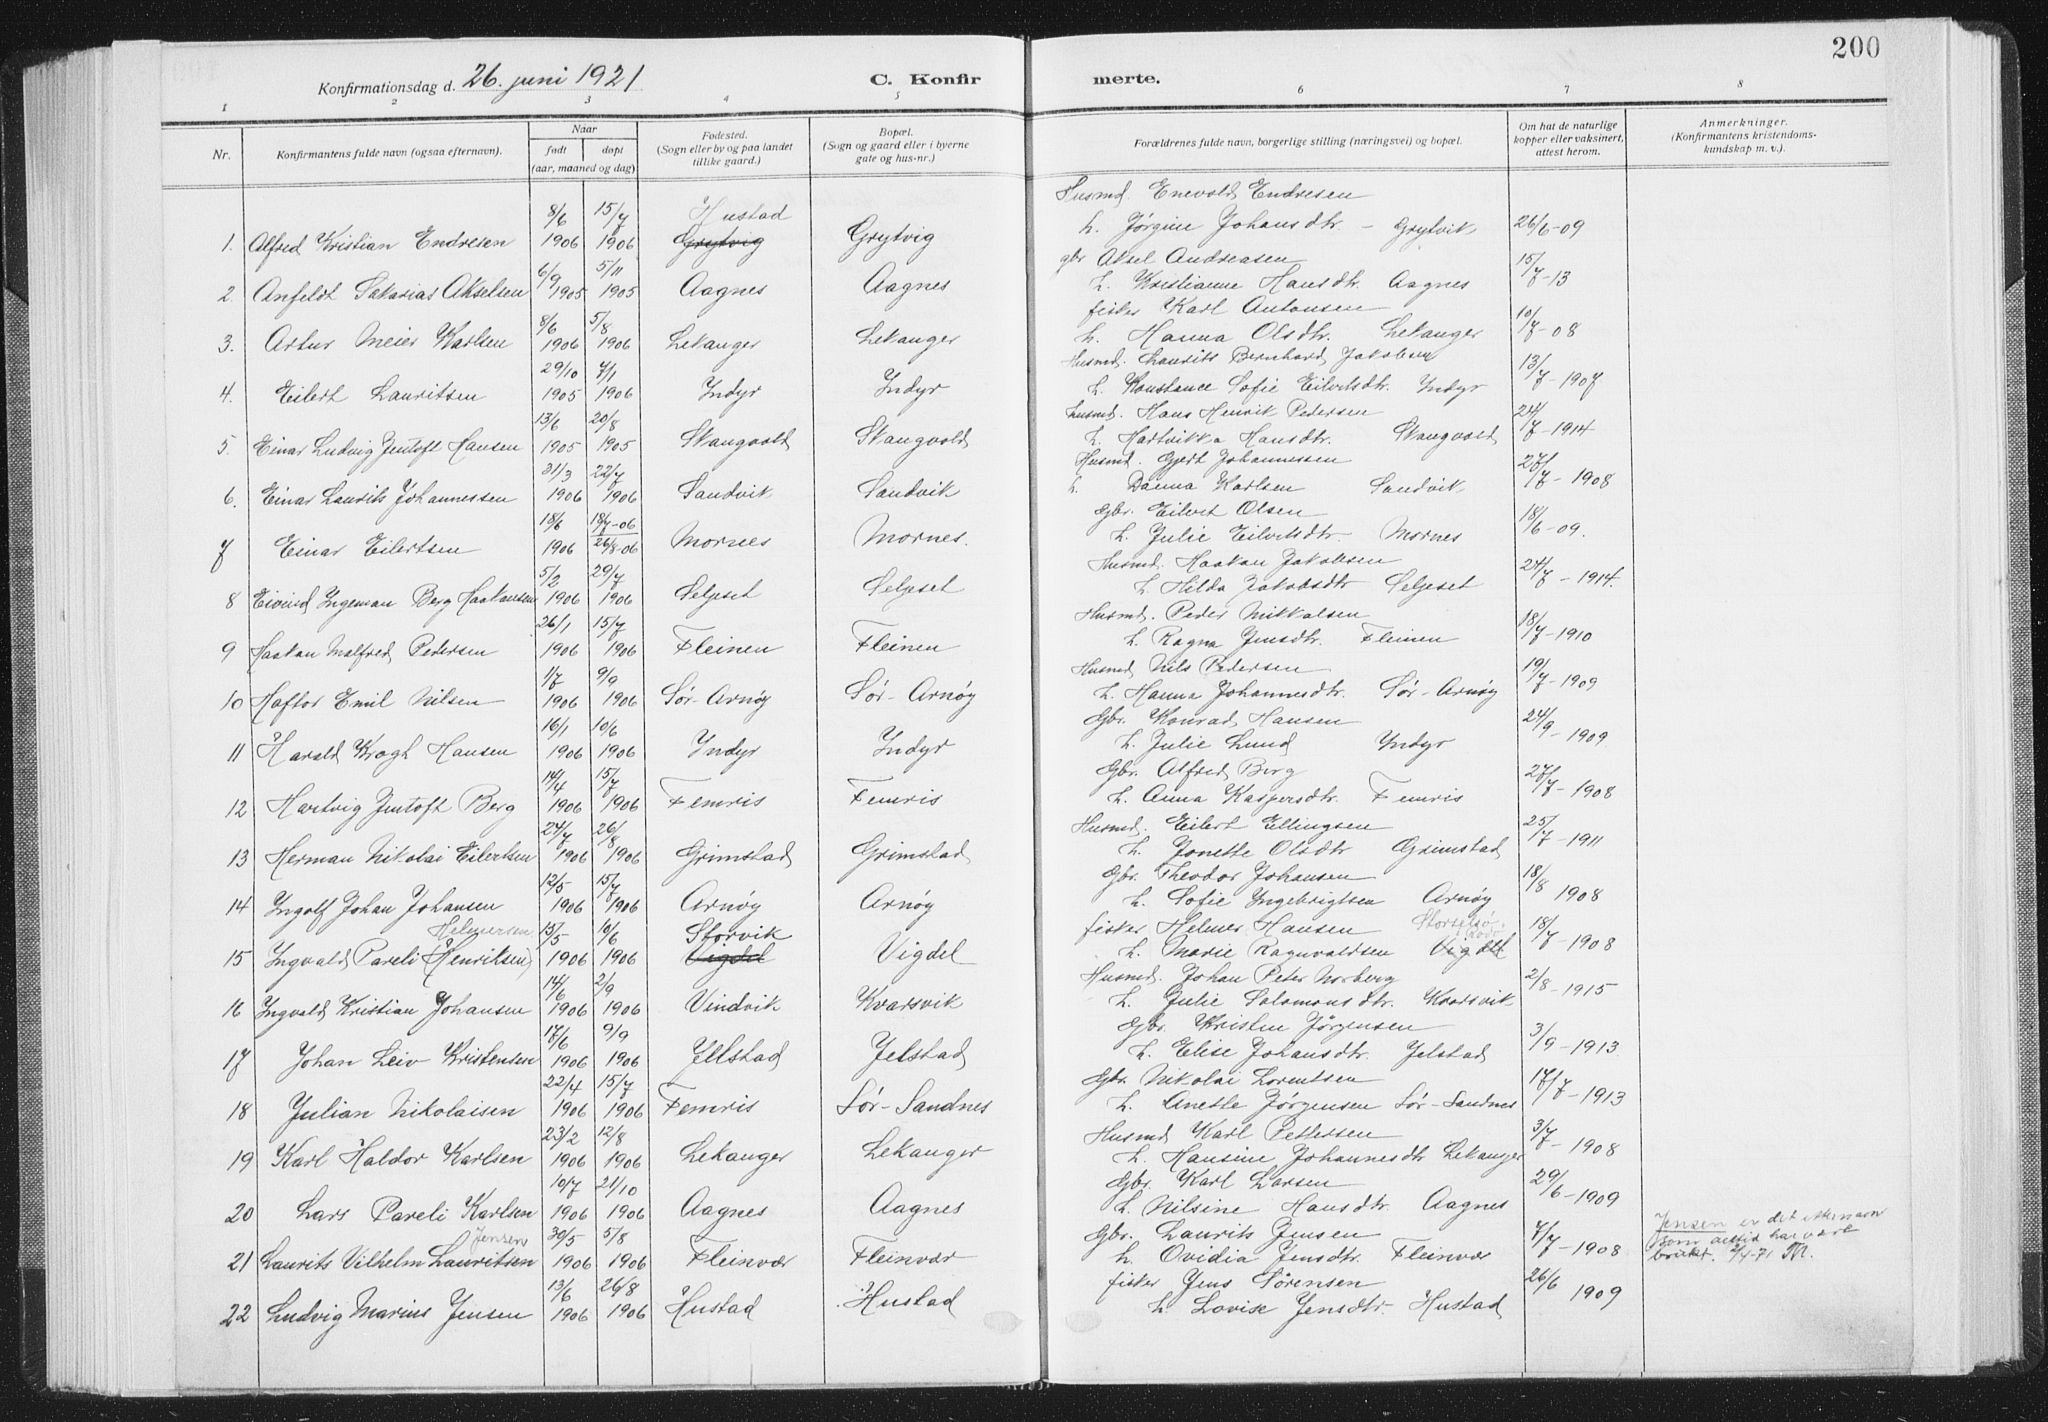 200
Konfirmationsdag d. 26. juni 1921 C. Konfirmerte.
1 2 3 4 5 6 7 8
Nr. Konfirmantens fulde navn (ogsaa efternavn). Naar født døpt (aar, maaned og dag) Fødested. (Sogn eller by og paa landet tillike gaard.) Bopæl. (Sogn og gaard eller i byerne gate og hus-nr.) Forældrenes fulde navn, borgerlige stilling (næringsvei) og bopæl. Om hat de naturlige kopper eller vaksinert, attest herom. Anmerkninger. (Konfirmantens kristendomskundskap m. v.).
8/6 15/7 Hustad Husmd. Enevold Endresen
1. Alfred Kristian Endresen 1906 1906 Grytvig Grytvig h. Jørgine Johansdtr. - Grytvik 26/6-09
6/9 5/11 gbr Aksel Andreasen
2. Anfeldt Sakarias Akselsen 1905 1905 Aagnes Aagnes h. Kristianne Hansdtr. Aagnes 15/7-13
8/6 5/8 fisker Karl Antonsen
3. Artur Meier Karlsen 1906 1906 Lekanger Lekanger h. Hanna Olsdtr. Lekanger 10/7-08
29/10 7/1 Husmd. Laurits Bernhard Jakobsen
4. Eilert Lauritsen 1905 1906 Yndyr Yndyr h. Konstance Sofie Eilertsdtr. Yndyr 13/7-1907
13/6 20/8 husmd. Hans Henrik Pedersen
5. Einar Ludvig Jentoft Hansen 1905 1905 Skaugvold Skaugvold h. Hartvikka Hansdtr. Skaugvold 24/7-1914
31/3 22/7 Husmd. Gjert Johannessen
6. Einar Laurits Johannessen 1906 1906 Sandvik Sandvik h. Danna Karlsen Sandvik 27/7-1908
18/6 18/7-06 Gbr. Eilert Olsen
7 Einar Eilertsen 1906 26/8-06 Mornes Mornes. h. Julie Eilertsdtr. Mornes 18/6-09.
5/2 29/7 Husmd. Haakan Jakobsen
8 Eivind Ingeman Berg Haakansen 1906 1906 Selseset Selseset h. Hilda Jakobsdtr Selseset 24/7-1914.
26/1 15/7 Husmd. Peder Nikkolsen
9 Haakan Malfred Pedersen 1906 1906 Fleinen Fleinen h. Ragna Jensdtr. Fleinen 18/7-1910
1/7 9/9 Husmd Nils Pedersen
10 Haftor Emil Nilsen 1906 1906 Sør-Arnøy Sør-Arnøy h. Hanna Johannesdtr. Sør-Arnøy 19/7-1909
16/1 10/6 Gbr. Konrad Hansen
11 Harald Krogh Hansen 1906 1906 Yndyr Yndyr h. Julie Lund Yndyr 24/9-1909
14/4 15/7 Gbr. Alfred Berg
12 Hartvig Jentoft Berg 1906 1906 Femris Femris h. Anna Kaspersdtr. Femris 27/7-1908
24/7 26/8 Husmd. Eilert Ellingsen
13 Herman Nikolai Eilertsen 1906 1906 Grimstad Grimstad h. Jonette Olsdtr Grimstad 25/7-1911
12/5 15/7 Gbr. Theodor Johansen
14 Ingolf Johan Johansen 1906 1906 Arnøy Arnøy h. Sofie Ingebrigtsen Arnøy 18/8 1908
Helmersen 15/5 10/6 Storvik fisker Helmer Hansen Storselsø. i Rødø
15 Ingvald Pareli (Henriksen) 1906 1906 Vigdel Vigdel h. Marie Ragnvaldsen Vigdel 18/7-1908
14/6 2/9 Husmd. Johan Peter Norberg
16 Ingvald Kristian Johansen 1906 1906 Vindvik Kvarsvik h. Julie Salomonsdtr. Kvarsvik 2/8-1915
17/6 9/9 Gbr. Kristen Jørgensen
17 Johan Leiv Kristensen 1906 1906 Jelstad Jelstad h. Elise Johansdtr. Jelstad 3/9-1913
22/4 15/7 Gbr. Nikolai Lorentsen
18 Julian Nikolaisen 1906 1906 Femris Sør-Sandnes h. Anette Jørgensen Sør-Sandnes 17/7-1913
23/2 12/8 Husmd Karl Pettersen
19 Karl Haldor Karlsen 1906 1906 Lekanger Lekanger h. Hansine Johannesdtr Lekanger 3/7-1908
10/7 21/10 Gbr. Karl Larsen
20 Lars Pareli Karlsen 1906 1906 Aagnes Aagnes h. Nilsine Hansdtr. Aagnes 29/6-1909
Jensen 30/5 5/8 Gbr. Laurits Jensen Jensen er det etternavn
21 Laurits Vilhelm Lauritsen 1906 1906 Fleinvær Fleinvær h. Ovidia Jensdtr. Fleinvær 7/7-1908 som alltid har vært brukt. 2/4-71 M.
13/6 26/8 fisker Jens Sørensen
22 Ludvig Marius Jensen 1906 1906 Hustad Hustad h. Lovise Jensdtr. Hustad 26/6 1909